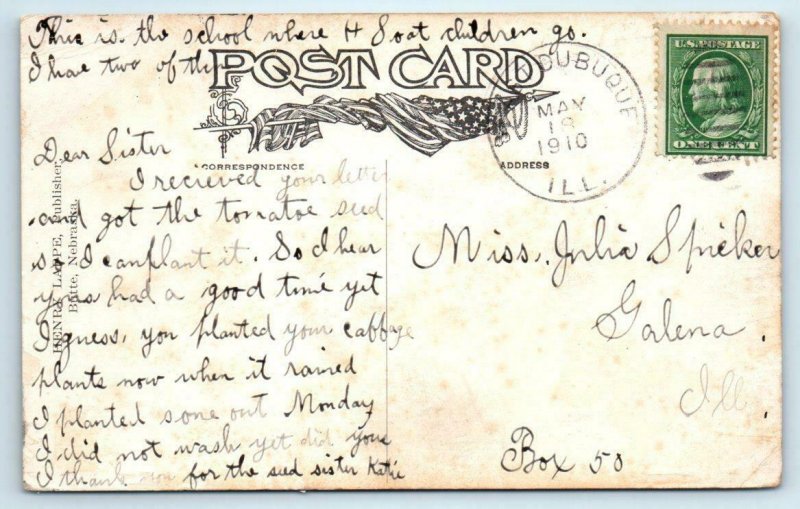 This is the school where H Soat children go.
I have two of th
POST CARD
CORRESPONDENCE
ADDRESS
Dear Sister
I recieved your letter
and got the tomatoe seed
so I can plant it. So I hear
you had a good time yet
I guess, you planted your cabbage
plants now when it rained
I planted some out Monday
I did not wash yet did you
I thank you for the seed sister Katie
HENRY LAPPE, Publisher,
Butte, Nebraska.
DUBUQUE
MAY
18
1910
ILL.
U.S. POSTAGE
ONE CENT
Miss. Julia Spieker
Galena.
Ill.
Box 50